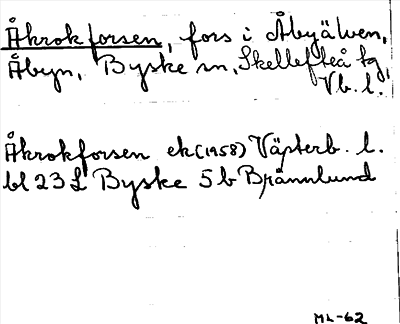 Åkrokforsen, fors i Åbyälven,
Åbyn, Byske sn, Skellefteå tg,
Vb. l.
Åkrokforsen ek (1958) Västerb. l.
bl 23 L Byske 5 b Brännlund
ML-62